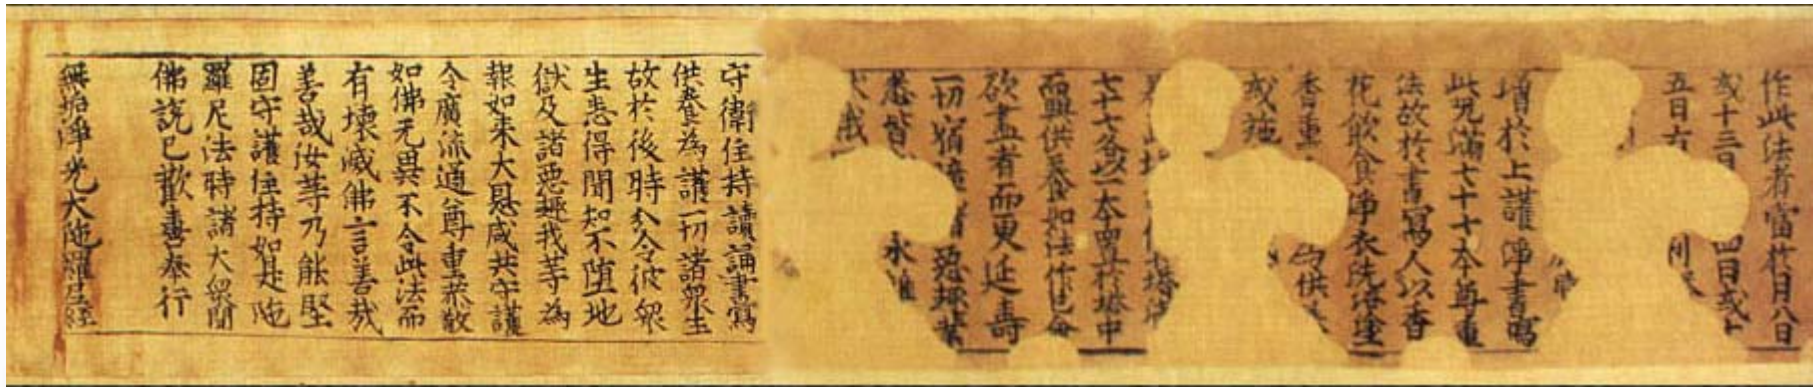 作此法者當於月八日
或十三日四日或十
五日右
增於上護淨書寫
此咒滿七十七本尊重
法故於書寫人以香
花飲食淨衣洗浴塗
香熏供
或施
此塔
七十七各以一本置於塔中
而興供養如法作已命
欲盡者而更延壽
一切宿障諸惡趣業
悉皆永離
守衛住持讀誦書寫
供養為護一切諸眾生
故於後時分令彼眾
生悉得聞知不墮地
獄及諸惡趣我等為
報如來大恩咸共守護
令廣流通尊重恭敬
如佛无異不令此法而
有壞滅佛言善哉
善哉汝等乃能堅
固守護住持如是陀
羅尼法時諸大眾聞
佛說已歡喜奉行
無垢淨光大陀羅尼經